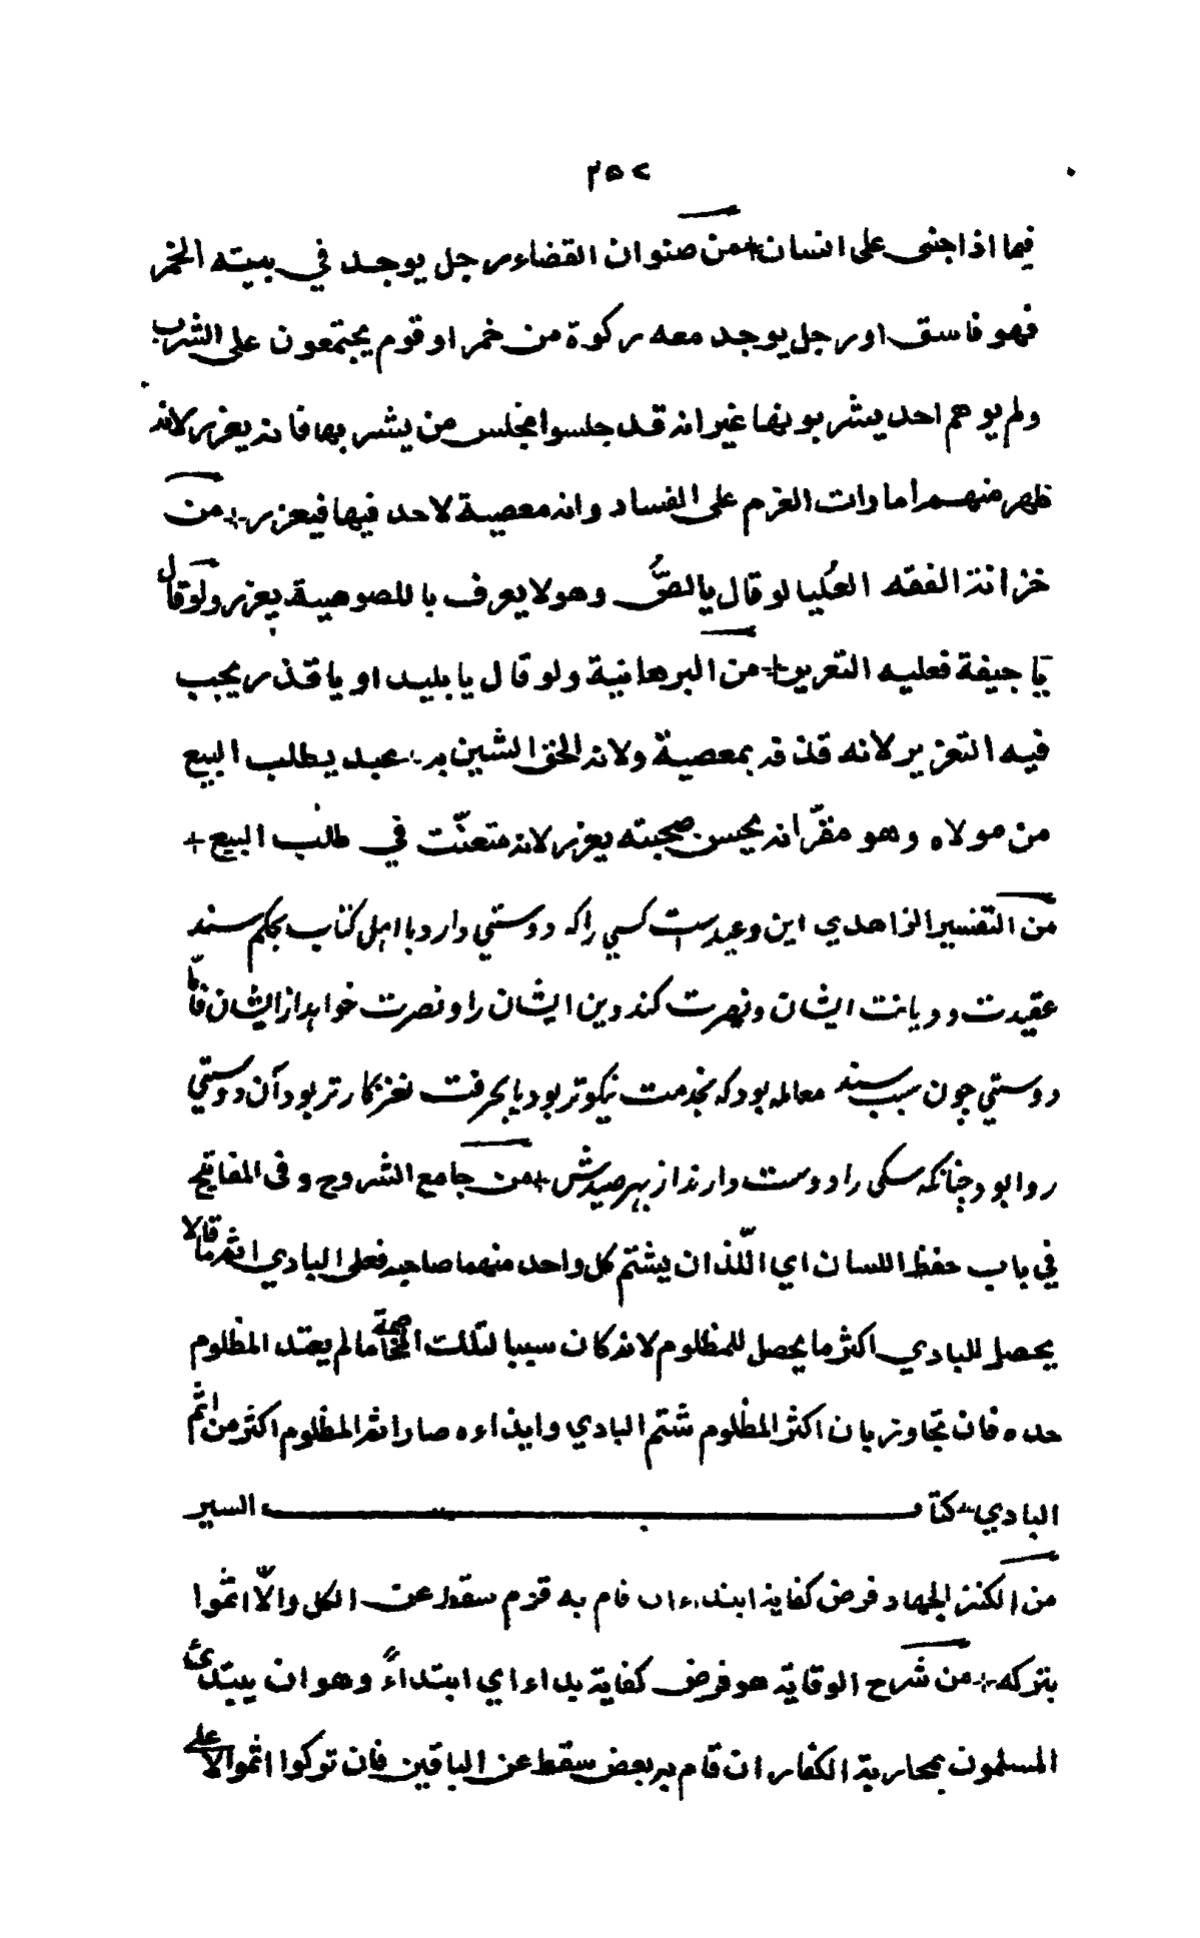 ٣٥٧
فيما اذا جنى على انسان + من صنوان القضاء رجل يوجد في بيته الخمر
فهو فاسق او رجل يوجد معه ركوة من خمر او قوم يجتمعون على الشرب
ولم يوهم احد يشربونها غير انه قد جلسوا مجلس من يشربها فانه يعزر لانه
ظهر منهم امارات العزم على الفساد وانه معصية لا حد فيها فيعزر + من
خزانة الفقه العُليا لو قال يا لصُّ وهو لا يعرف باللصوصية يعزر ولو قال
يا جيفة فعليه التعزير + من البرهانية ولو قال يا بليد او يا قذر يجب
فيه التعزير لانه قذفه بمعصية ولانه الحق الشين به + عبد يطلب البيع
من مولاه وهو مقرّ انه يحسن صحبته يعزر لانه متعنّت في طلب البيع +
من التفسير الزاهدي اين وعيدست كسي راكه دوستي دارد با اهل كتاب بحكم سند
عقيدت وديانت ايشان ونصرت كند دين ايشان را ونصرت خواهد از ايشان فامّا
دوستي جون بسبب سند معامله بود كه بخدمت نيكوتر بود يا بحرفت نغز كارتر بود آن دوستي
روا بود چنانكه سكى را دوست دارند از بهر صيدش + من جامع الشروح وفى المفاتيح
في باب حفظ اللسان اي الّلذان يشتم كل واحد منهما صاحبه فعلى البادي اثم ما قالا
يحصل للبادي اكثر ما يحصل للمظلوم لانه كان سببا لتلك المخاصمة ما لم يعتد المظلوم
حده فان تجاوز بان اكثر المظلوم شتم البادي وايذاءه صار اثم المظلوم اكثر من اثم
البادي + كتاب السير
من الكنز الجهاد فرض كفاية ابتداء ان قام به قوم سقط عن الكل والّا اثموا
بتركه + من شرح الوقاية هو فرض كفاية بداءا اي ابتداءً وهو ان يبتدئ
المسلمون بمحاربة الكفار ان قام به بعض سقط عن الباقين فان تركوا اثموا لا على